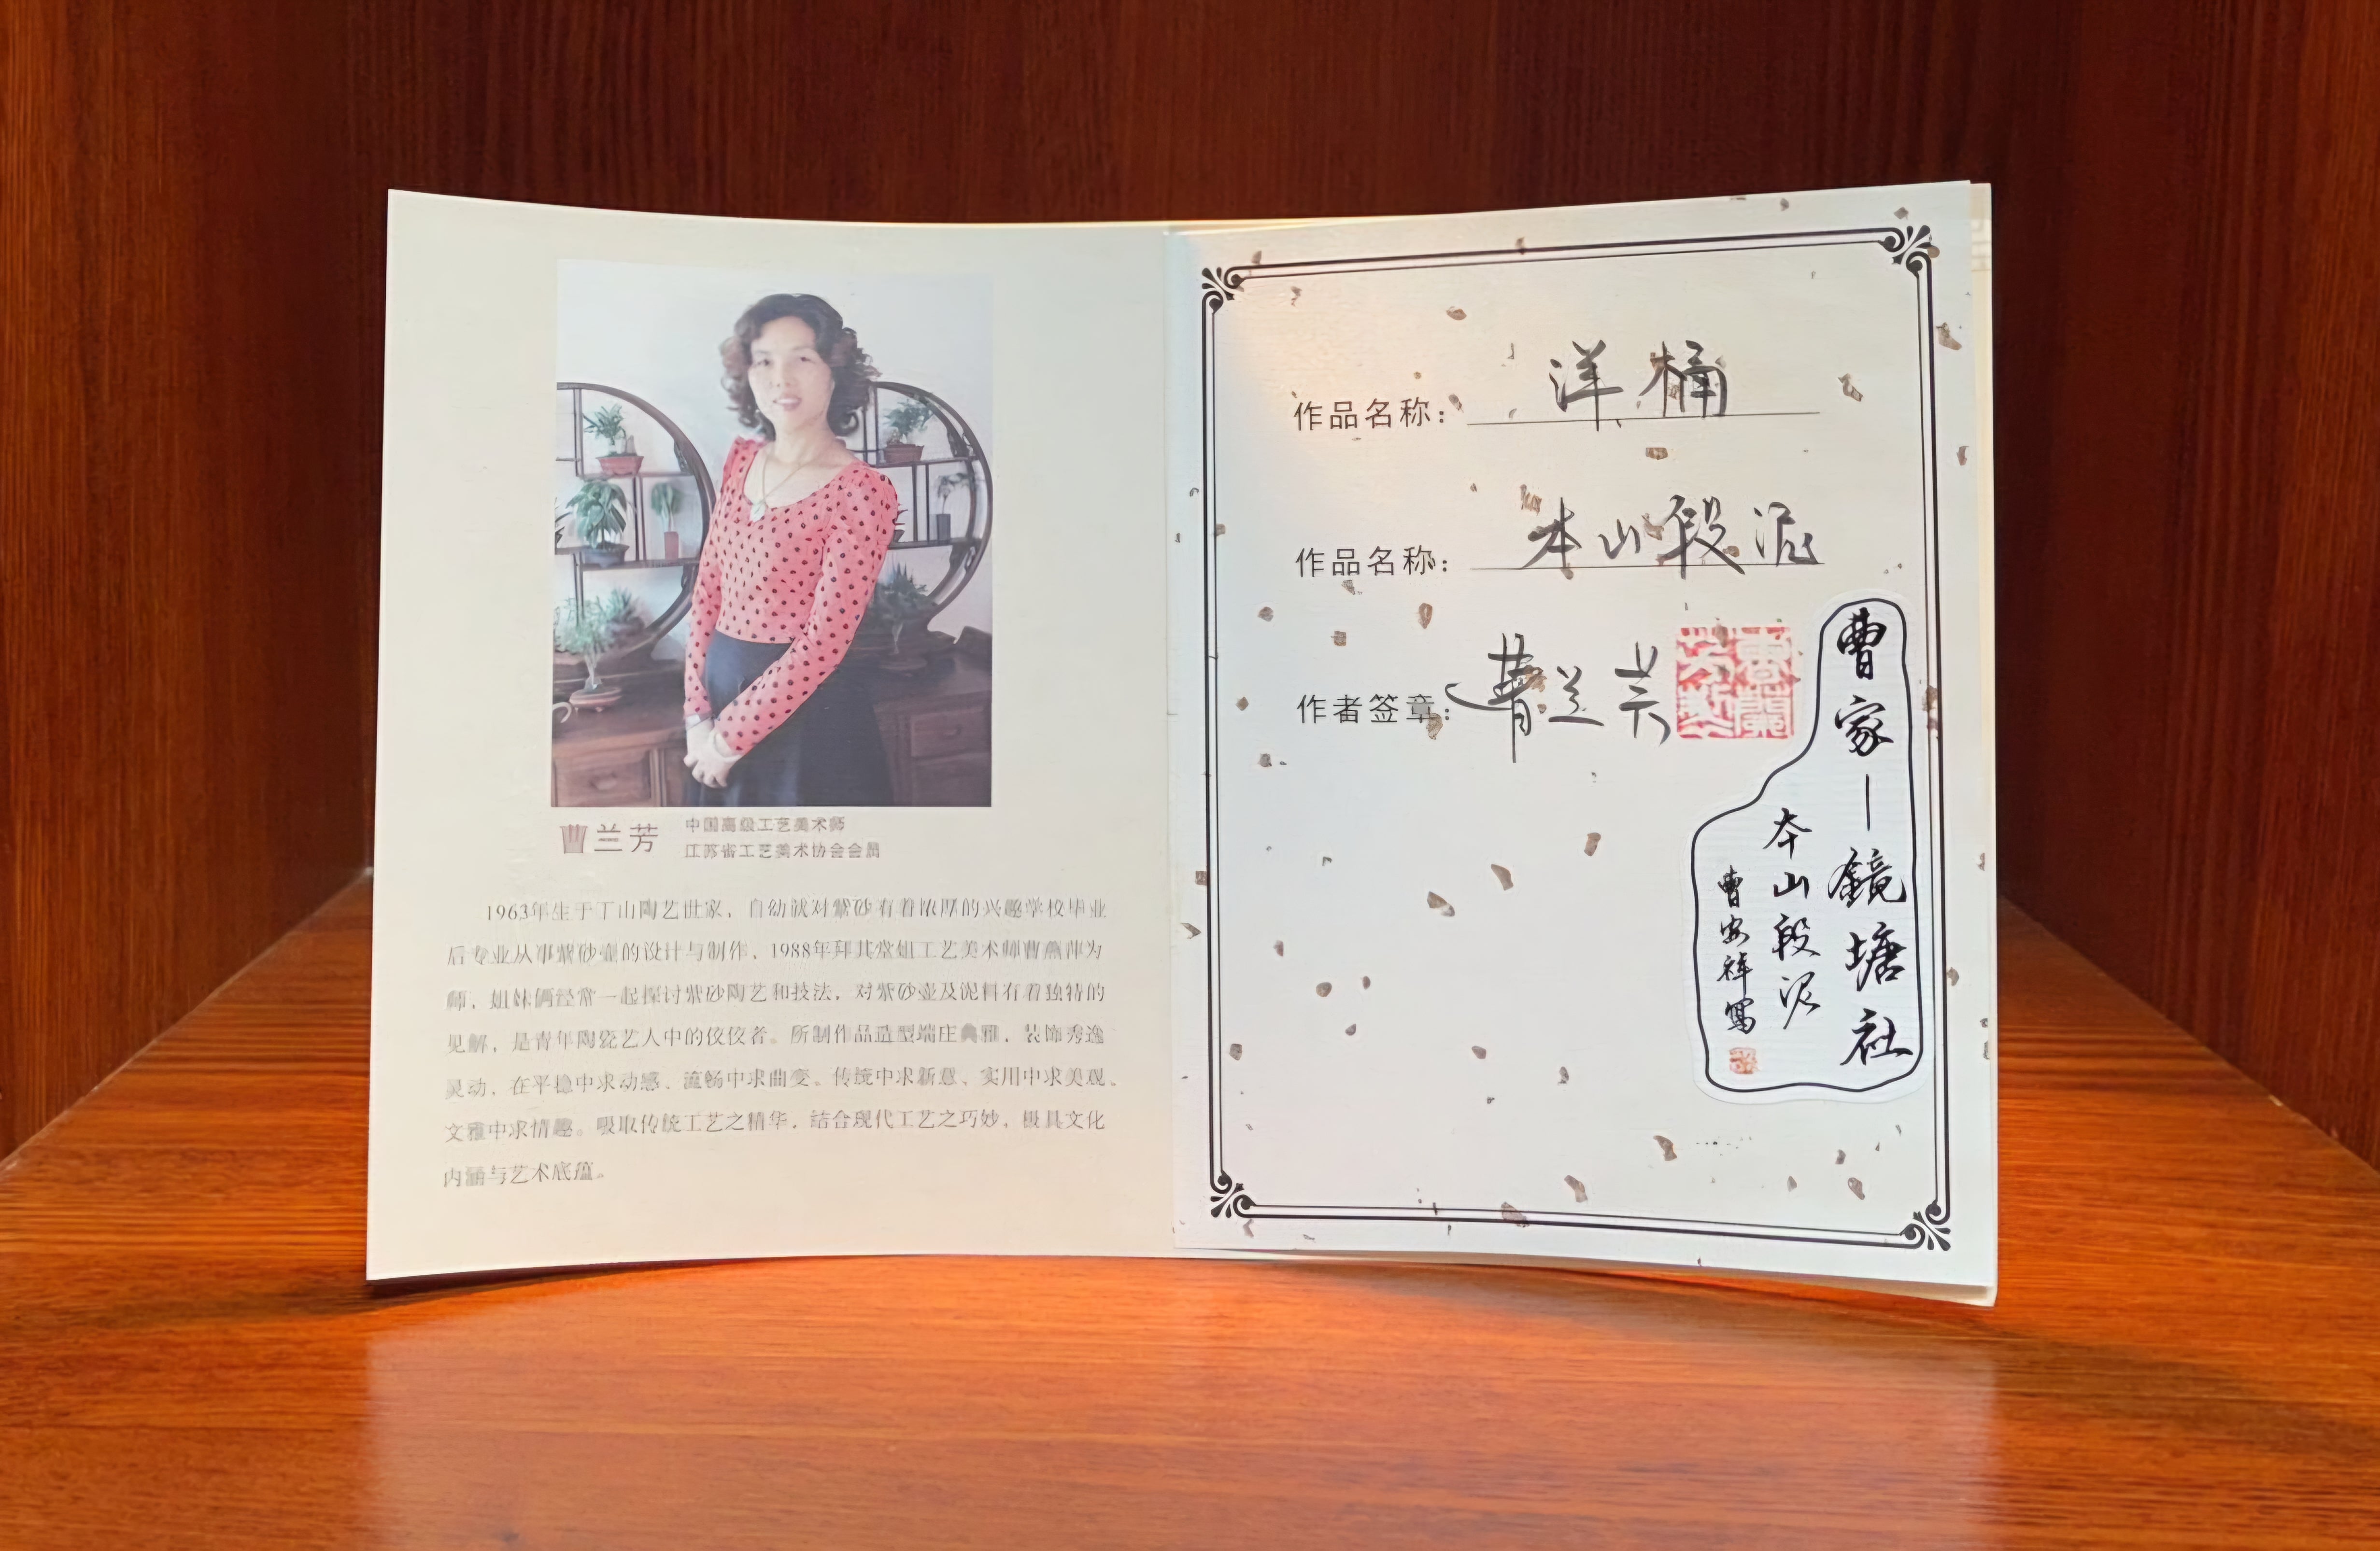 曹兰芳
中国高级工艺美术师
江苏省工艺美术协会会员
1963年生于丁山陶艺世家，自幼就对紫砂有着浓厚的兴趣学校毕业
后专业从事紫砂壶的设计与制作，1988年拜其堂姐工艺美术师曹燕萍为
师，姐妹俩经常一起探讨紫砂陶艺和技法，对紫砂壶及泥料有着独特的
见解，是青年陶瓷艺人中的佼佼者。所制作品造型端庄典雅，装饰秀逸
灵动，在平稳中求动感、流畅中求曲变。传统中求新意、实用中求美观、
文雅中求情趣。吸取传统工艺之精华，结合现代工艺之巧妙，极具文化
内涵与艺术底蕴。
作品名称：洋桶
作品名称：本山段泥
作者签章：曹兰芳
曹家—鏡塘社
本山段泥
曹安祥寫